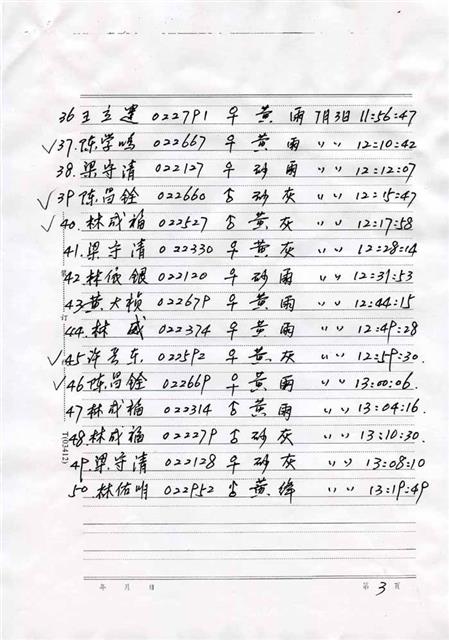 36 王立建 022791 ♀ 黄 雨 7月3日 11:56:47
✓37. 陈学鸣 022667 ♀ 黄 雨 〃 12:10:42
38. 梁守清 022127 ♀ 砂 雨 〃 12:12:07
✓39 陈昌铨 022660 ♂ 砂 灰 〃 12:15:47
✓40. 林成福 022527 ♂ 黄 灰 〃 12:17:58
41. 梁守清 022330 ♀ 黄 灰 〃 12:28:14
42. 林依银 022120 ♀ 砂 雨 〃 12:31:53
43 黄大桢 022679 ♀ 黄 雨 〃 12:44:15
44. 林 威 022374 ♀ 黄 雨 〃 12:49:28
✓45 许 东 022592 ♀ 黄 灰 〃 12:59:30.
✓46 陈昌铨 022669 ♀ 黄 雨 〃 13:00:06.
47 林成福 022314 ♂ 黄 雨 〃 13:04:16.
48. 林成福 022279 ♂ 砂 灰 〃 13:10:30.
49. 梁守清 022128 ♀ 砂 灰 〃 13:08:10
50. 林佑明 022952 ♂ 黄 绛 〃 13:19:49
订
T(03412)
年 月 日 第 3 页